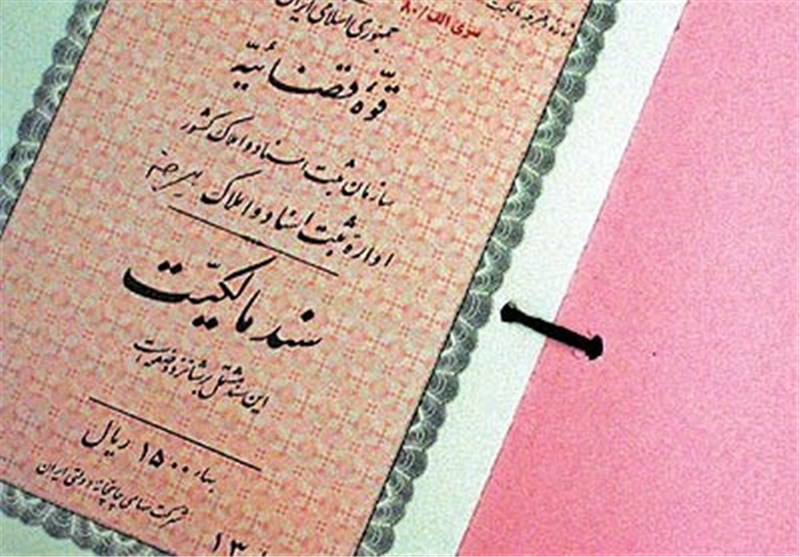 شماره دفترچه مالکیت
سری الف/۸۰
جمهوری اسلامی ایران
قوّهٔ قضائیّه
سازمان ثبت اسناد و املاک کشور
اداره ثبت اسناد و املاک بیرجند
سند مالکیّت
این سند مشتمل بر شانزده صفحه است
بهاء ۱۵۰۰ ریال
شرکت سهامی چاپخانه دولتی ایران